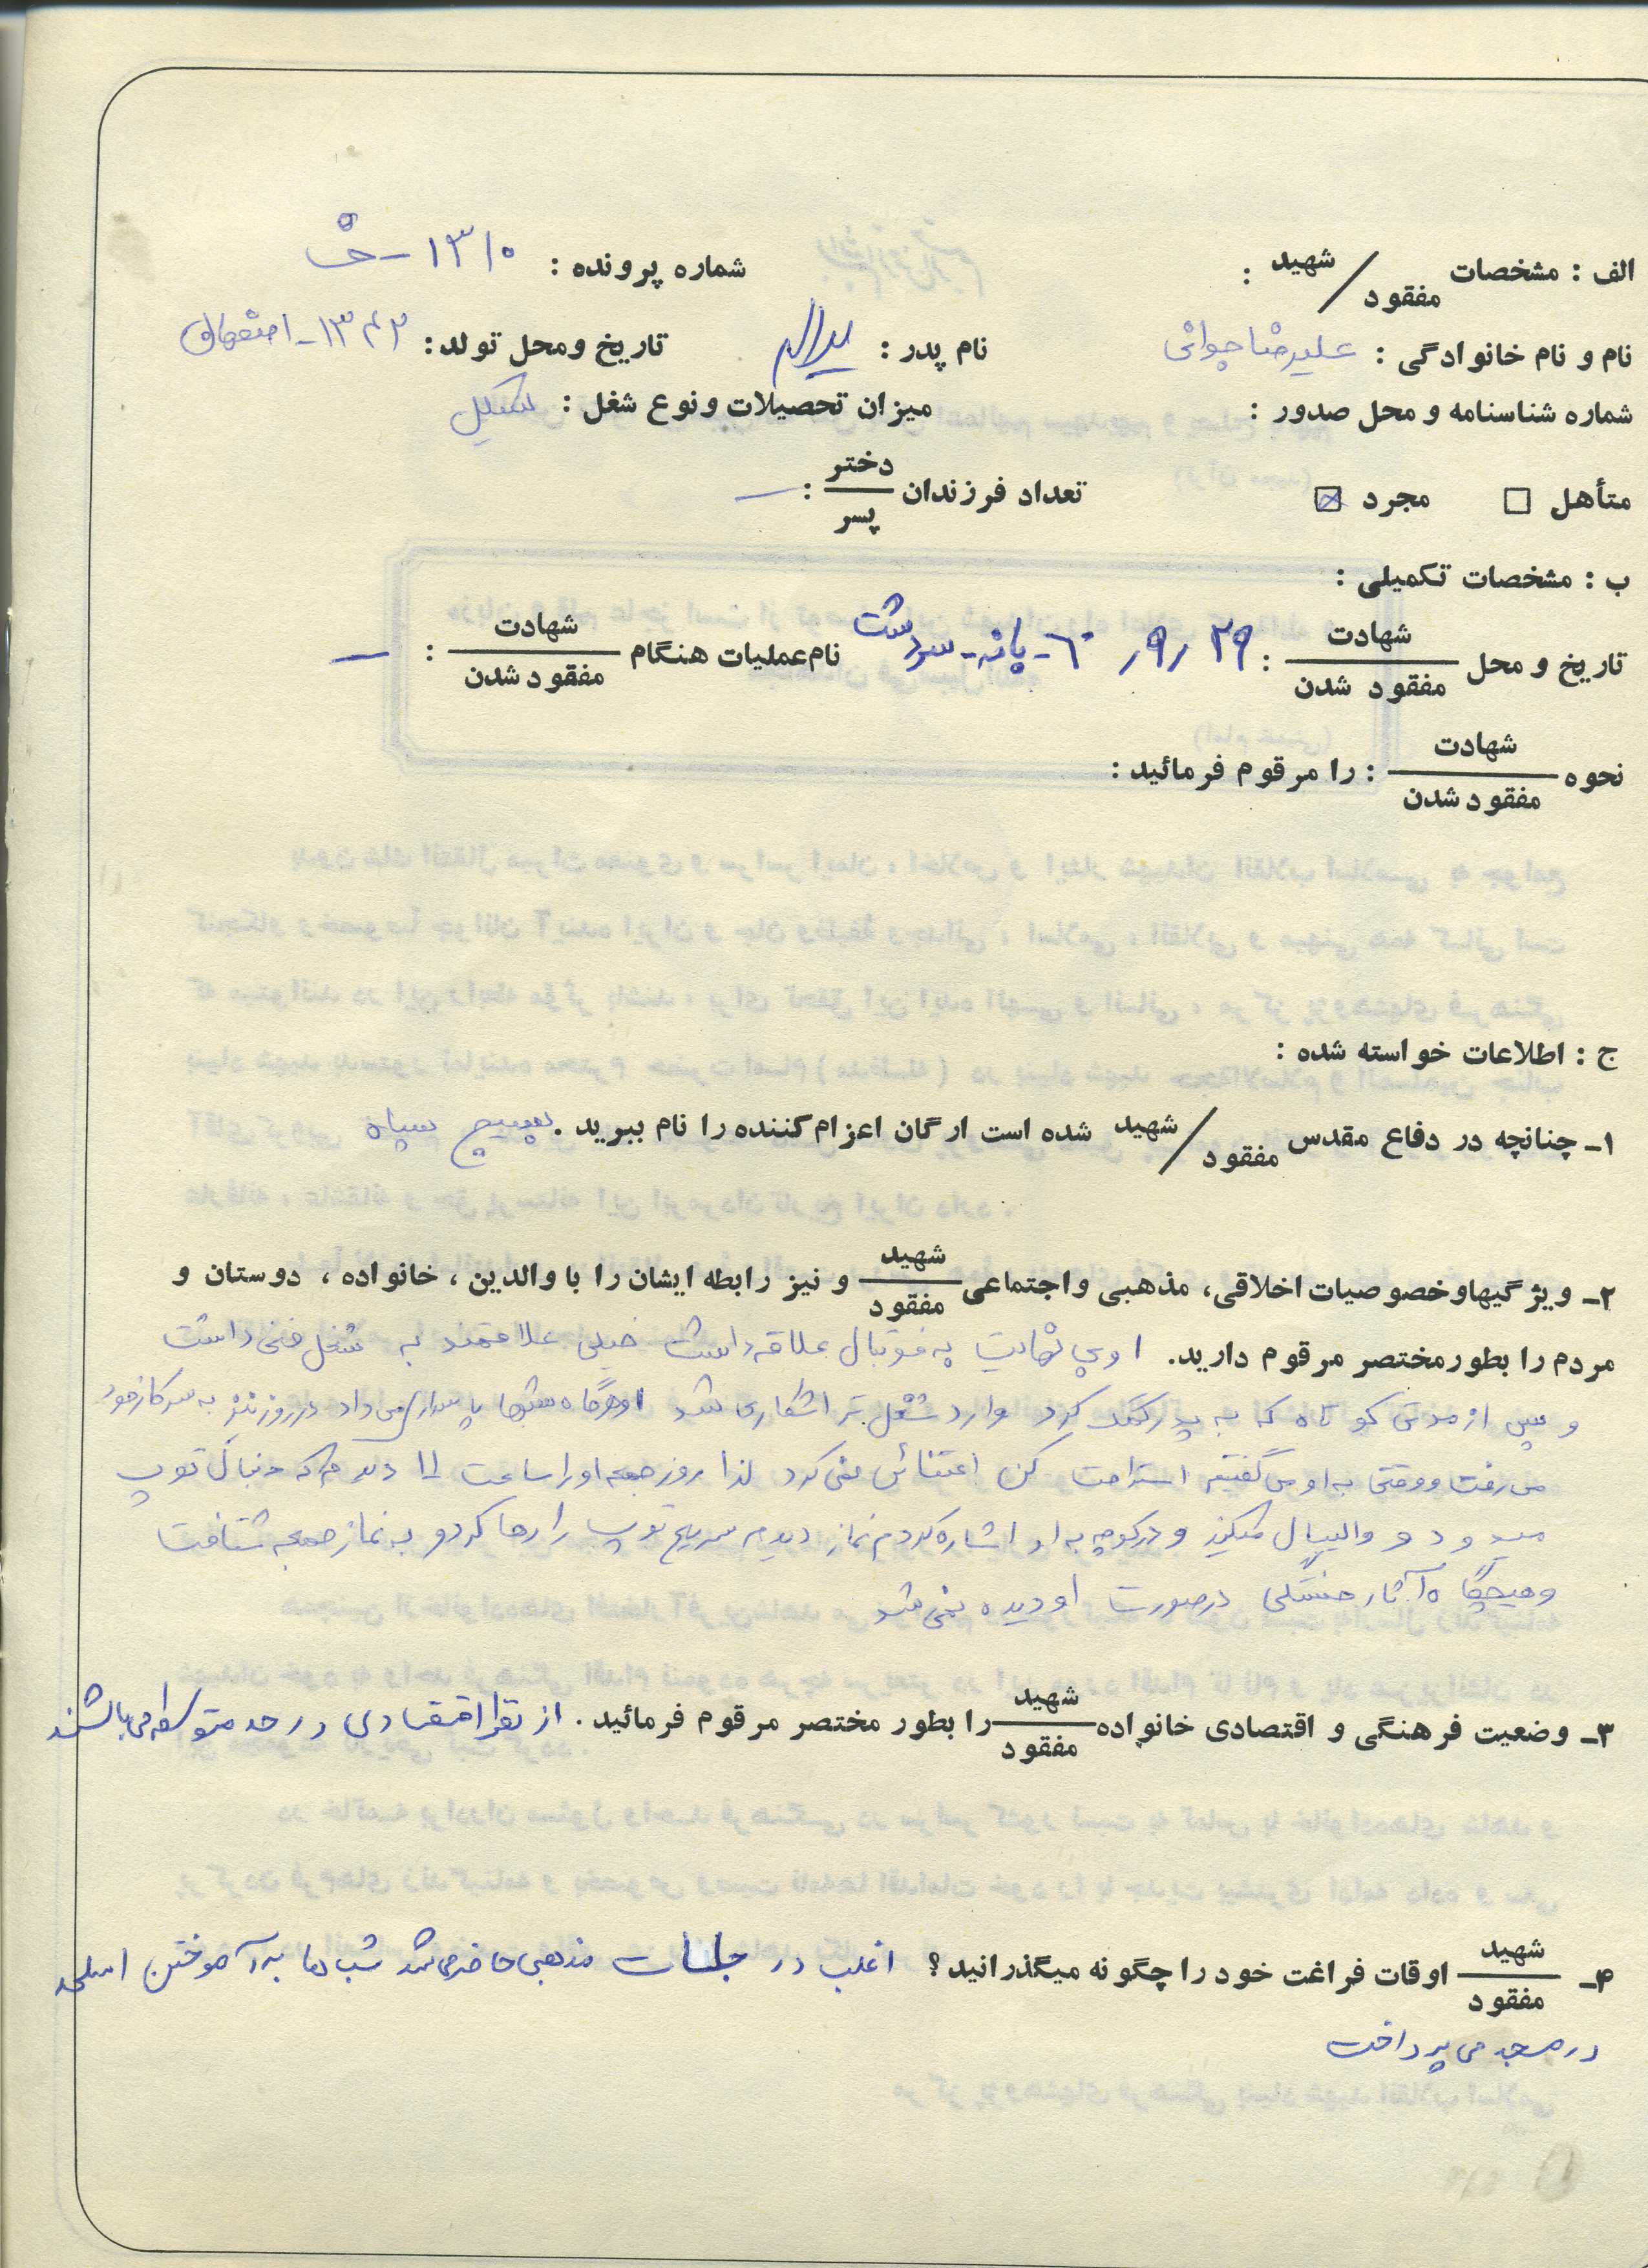 الف : مشخصات شهید / مفقود :
شماره پرونده : ۱۳۱۰ -
نام و نام خانوادگی : علیرضا جوانی نام پدر : یداله تاریخ ومحل تولد : ۱۳۴۲ - اصفهان
شماره شناسنامه و محل صدور : میزان تحصیلات ونوع شغل :
متأهل □ مجرد ☒ تعداد فرزندان دختر / پسر : —
ب : مشخصات تکمیلی :
تاریخ و محل شهادت / مفقود شدن : ۲۹ ر ۹ ر ۶۰ - بانه - سردشت نام عملیات هنگام شهادت / مفقود شدن : —
نحوه شهادت / مفقود شدن : را مرقوم فرمائید :
ج : اطلاعات خواسته شده :
۱ـ چنانچه در دفاع مقدس شهید / مفقود شده است ارگان اعزام کننده را نام ببرید . بسیج سپاه
۲ـ ویژگیها وخصوصیات اخلاقی، مذهبی واجتماعی شهید / مفقود و نیز رابطه ایشان را با والدین ، خانواده ، دوستان و
مردم را بطور مختصر مرقوم دارید. او بی نهایت به فوتبال علاقه داشت خیلی علاقمند به شغل فنی داشت
و پس از مدتی کوتاه که به پدر کمک کرد وارد شغل تراشکاری شد او هرگاه شبها پاسداری می داد در روز نیز به سر کار خود
می رفت و وقتی به او می گفتیم استراحت کن اعتنائی نمی کرد لذا روز جمعه او را ساعت ۱۱ دیدم که دنبال توپ
میدود و والیبال میکند و در کوچه به او اشاره کردم نماز دیدم سریع توپ را رها کرد و به نماز جمعه شتافت
و هیچگاه آثار خستگی در صورت او دیده نمی شد
۳ـ وضعیت فرهنگی و اقتصادی خانواده شهید / مفقود را بطور مختصر مرقوم فرمائید . از نظر اقتصادی در حد متوسط می باشند
۴ـ شهید / مفقود اوقات فراغت خود را چگونه میگذرانید ؟ اغلب در جلسات مذهبی حاضر می شد شب ها به آموختن اسلحه
در مسجد می پرداخت